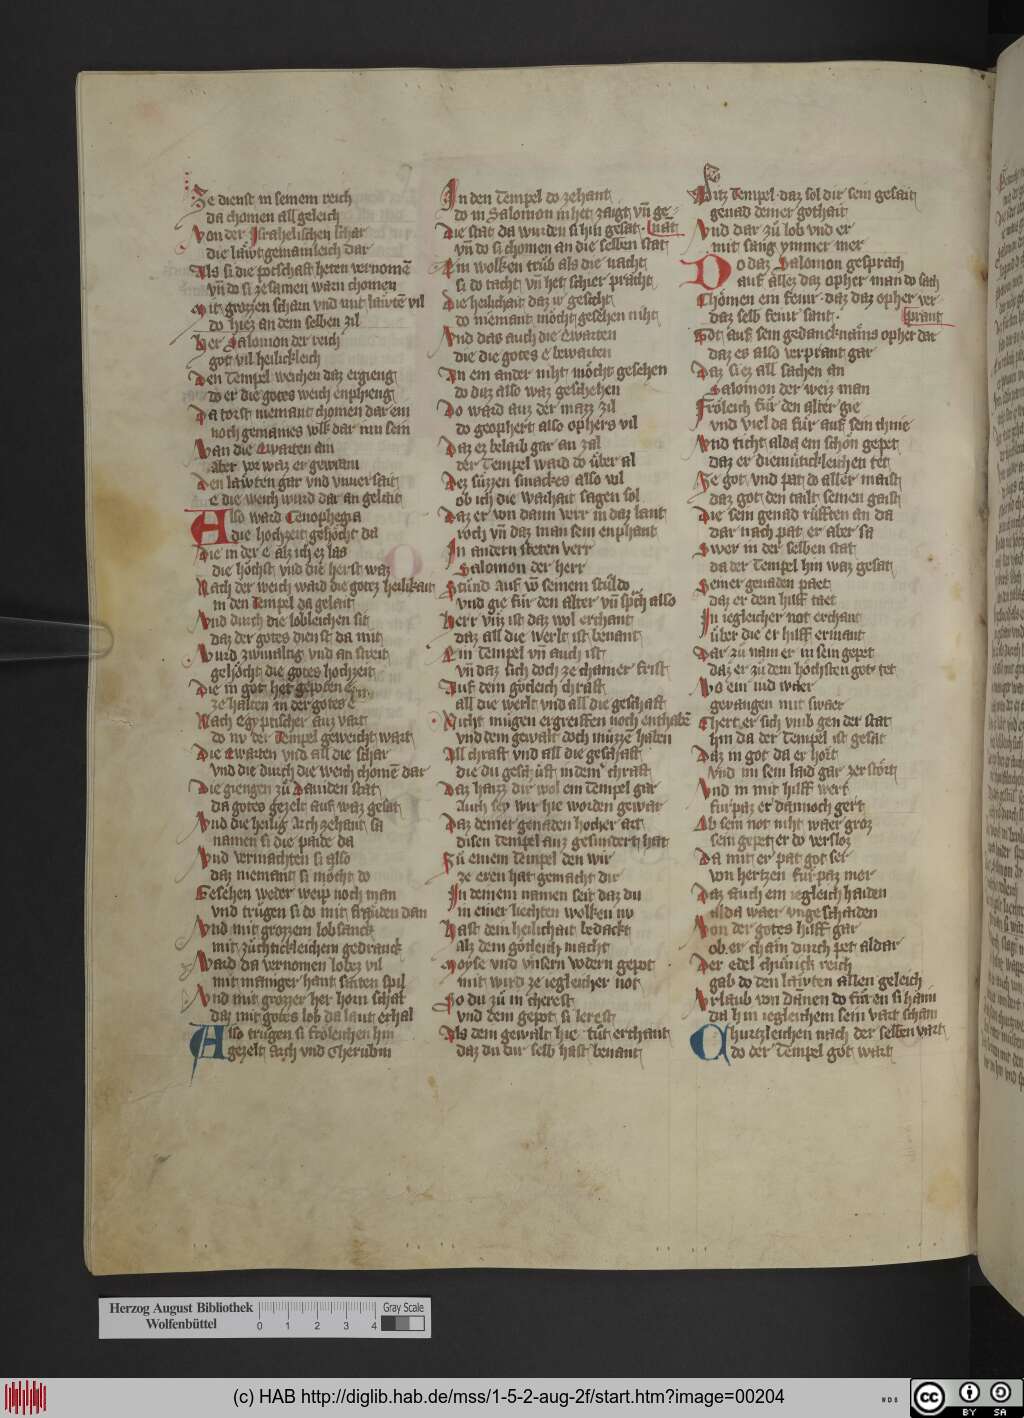 Ze dienst in seinem reich
da chomen all geleich
Von der Israhelischen schar
die läwt gemainleich dar
Als si die potschaft heten vernomē
vn̄ do si zesamen warn chomen
Mit grozzen scharn vnd mit läwtē vil
do hiez an dem selben zil
Her Salomon der reich
got vil heilickleich
Den Tempel weichen daz ergieng
do er die gotes weich enphieng
Da torst niemant chomen dar ein
noch gemaines volk dar inn sein
Wan die Ewarten ain
aber vor waz er gewain
Den läwten gar vnd vnuersait
e die weich wurd dar an gelait
Also ward Cenophegia
die hochzeit gehöcht da
Die in der e alz ich ez las
die höchst vnd die herst waz
Nach der weich ward die gotez heilikait
in den Tempel da gelait
Vnd durch die lobleichen sit
daz der gotes dienst da mit
Wurd zwiualtig vnd an streit
gehöcht die gotes hochzeit
Die in got het gepoten e
ze halten in der gotes e
Nach Egyptischer auz vart
do nv der Tempel geweicht wart
Die Ewarten vnd all die schar
vnd die durch die weich chomē dar
Die giengen zů Dauiden stat
da gotes gezelt auf waz gesat
Vnd die heilig Arch zehant sa
namen si die paide da
Vnd vermachten si also
daz niemant si möcht do
Gesehen weder weip noch man
vnd trůgen si do mit fräuden dan
Vnd mit grozzem lob sanck
mit züchtickleichem gedranck
Ward da vernomen lobez vil
mit maniger hant saiten spil
Vnd mit grozzer her horn schal
daz mit gotes lob da laut erhal
Also trůgen si frőleichen hin
gezelt Arch vnd Cherubin
In den Tempel do zehant
do in Salomon inhet zaigt vn̄ ge-
Die stat da wurden si hin gesat. nāt
vn̄ do si chomen an die selben stat
Ein wolken trüb als die nacht
si do tacht vn̄ het schier pracht
Die heilichait daz ir gesicht
do niemant möcht gesehen niht
Vnd das auch die Ewarten
die die gotes e bewarten
An ein ander niht möcht gesehen
do daz also waz geschehen
Do ward auz der mazz zil
do geophert also ophers vil
Daz ez belaib gar an zal
der Tempel ward do über al
Dez süzzen smackes also vil
ob ich die warhait sagen sol
Daz er von dann verr in daz lant
roch vn̄ daz man sein enphant
In andern steten verr
Salomon der herr
Stůnd auf vō seinem stůl do
vnd gie für den alter vn̄ sp̄ch also
Herr vnz ist daz wol erchant
daz all die werlt ist benant
Ein Tempel vn̄ auch ist
vn̄ daz sich doch ze chainer frist
Auf dein götleich chraft
all die werlt vnd all die geschaft
Nicht mügen ergreiffen noch enthabē
vnd dem gewalt doch müzzē haben
All chraft vnd all die geschaft
die du geschüft in deinr chraft
Daz haizz dir wol ein Tempel gar
Auch sey wir hie worden gewar
Daz deiner genaden hocher art
disen Tempel auz gesundert hat
Zů einem Tempel den wir
ze eren hat gemacht dir
In deinem namen seit daz du
in einer liechten wolken nv
Hast dein heilichait bedackt
Alz dein götleich macht
Moyse vnd vnsern vodern gepot
mit wird ze iegleicher not
So du zů in cherest
vnd dein gepot si lerest
Als dein gewalt hie tůt erchant
daz du dir selb hast benant
Ditz Tempel daz sol dir sein gesait
genad deiner gothait
Vnd dar zů lob vnd er
mit sang ymmer mer
Do daz Salomon gesprach
auf allez daz opher man do sach
Chömen ein feur. daz daz opher ver-
daz selb feur sant. prant
Got auf sein gedancknüzs opher dar
daz es also verprant gar
Daz si ez all sachen an
Salomon der weiz man
Fröleich für den alter gie
vnd viel da für auf sein chnie
Vnd ticht alda ein schön gepet
daz er diemütickleichen tet
Ze got vnd pat do aller maist
daz got den tailt seinen gaist
Die sein genad rüfften an da
dar nach pat er aber sa
Swer in der selben stat
da der Tempel hin waz gesat
Seiner genaden paet
daz er dem hilff taet
In iegleicher not erchant
über die er hilff ermant
Dar zů nam er in sein gepet
daz er zů dem höchsten got tet
Wo ein iud waer
gevangen mit swaer
Chert er sich vmb gen der stat
hin da der Tempel ist gesat
Daz in got da er hört
vnd im sein laid gar zerstört
Vnd in mit hilff wert
fürpaz er dannoch gert
Ob sein not niht waer groz
sein gepet er do versloz
Da mit er pat got ser
von hertzen fürpaz mer
Daz auch ein iegleich haiden
alda waer vngeschaiden
Von der gotes hilff gar
ob er chäm durch pet aldar
Der edel chünick reich
gab do den läwten allen geleich
Vrlaub von dannen do füren si haim
da hin iegleichem sein vart schain
Churtzleichen nach der selben vart
do der Tempel got wart
Herzog August Bibliothek
Wolfenbüttel
0 1 2 3 4
Gray Scale
(c) HAB http://diglib.hab.de/mss/1-5-2-aug-2f/start.htm?image=00204
WDB
cc BY SA